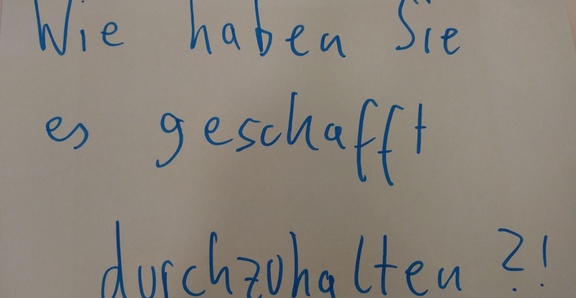 Wie haben Sie
es geschafft
durchzuhalten ?!